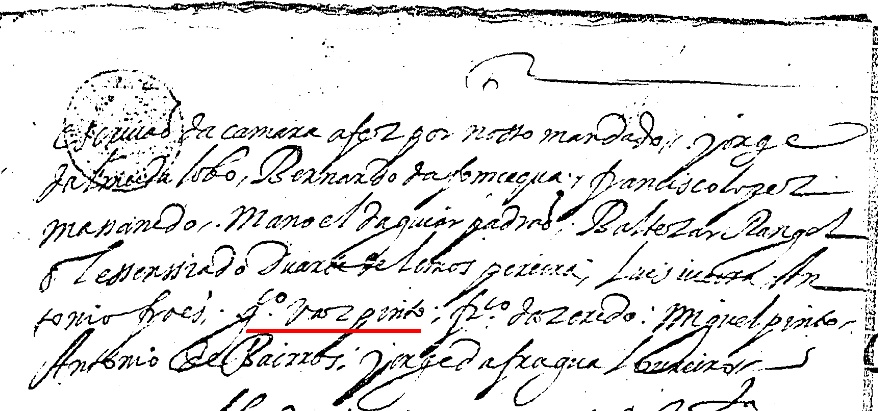 escrivão da camara a fez por nosso mandado, jorge
dalmeda lobo, Bernardo da fomcequa, francisco lopez
manoel daguiar padrão, Baltezar Rangel
o lessensiado Duarte de lemos pereira, Luis An
tonio froes, gº vaz pinto, frco dazeredo, Miguel pinto,
Antonio de Bairros, jorge da fragua Loureiro